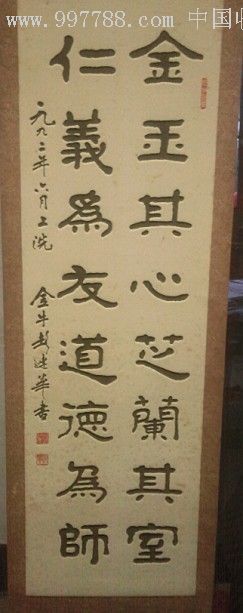 www.997788.com 中国收
金玉其心芝蘭其室
仁義為友道德為師
一九九二年六月上浣
金牛 建華書